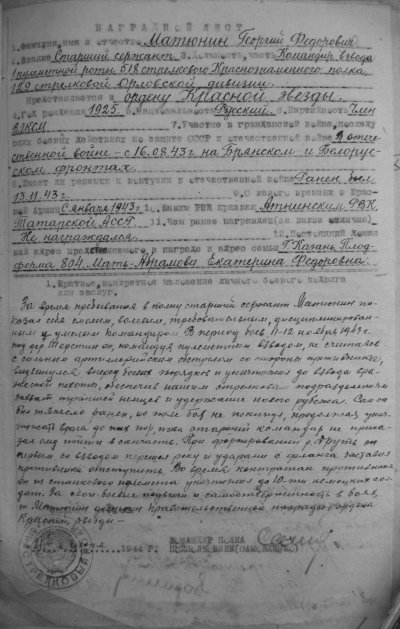 НАГРАДНОЙ ЛИСТ
1. Фамилия, имя и отчество Матюнин Георгий Федорович
2. Звание Старший сержант 3. Должность, часть Командир взвода
1 пулеметной роты 518 стрелкового Краснознаменного полка
129 стрелковой Орловской дивизии.
Представляется к ордену Красной звезды.
4. Год рождения 1925 5. Национальность Русский 6. Партийность Член
ВЛКСМ 7. Участие в гражданской войне, последу
ющих боевых действиях по защите СССР и отечественной войне В отече-
ственной войне - с 16.08.43 г. на Брянском и Белорус-
ском фронтах.
8. Имеет ли ранения и контузии в отечественной войне Ранен
13.11.43 г. 9. С какого времени в Крас-
ной Армии С января 1943 г. 10. Каким РВК призван Атнинским РВК
Татарской АССР 11. Чем ранее награжден (за какие отличия)
Не награждался. 12. Постоянный домаш
ний адрес представляемого к награде и адрес семьи Г. Казань, Плод-
ферма 804. Мать - Екатерина Федоровна.
1. Краткое, конкретное изложение личного боевого подвига
или заслуг.
За время пребывания в полку старший сержант Матюнин по-
казал себя смелым, волевым, требовательным, дисциплинирован-
ным и умелым командиром. В период боев 11-12 ноября 1943 г.
под дер. он, командуя пулеметным взводом, не считаясь
с сильным артиллерийским обстрелом со стороны противника,
выдвинулся вперед боевых порядков и уничтожил до взвода вра-
жеской пехоты, обеспечив нашим стрелковым подразделениям
захват траншей немцев и удержание нового рубежа. Сам он
был тяжело ранен, но поле боя не покинул, продолжая унич-
тожать врага до тех пор, пока старший командир не прика-
зал ему пойти в санчасть. При форсировании р. Друть он
первым со взводом перешел реку и ударами с фланга заставил
противника отступить. Во время контратак противника,
он из станкового пулемета уничтожил до 10-ти немецких сол-
дат. За свои боевые подвиги и самоотверженность в боях
т. Матюнин достоин правительственной награды ордена
Красной звезды -
КОМАНДИР ПОЛКА
1944 г. ПОДПОЛКОВНИК